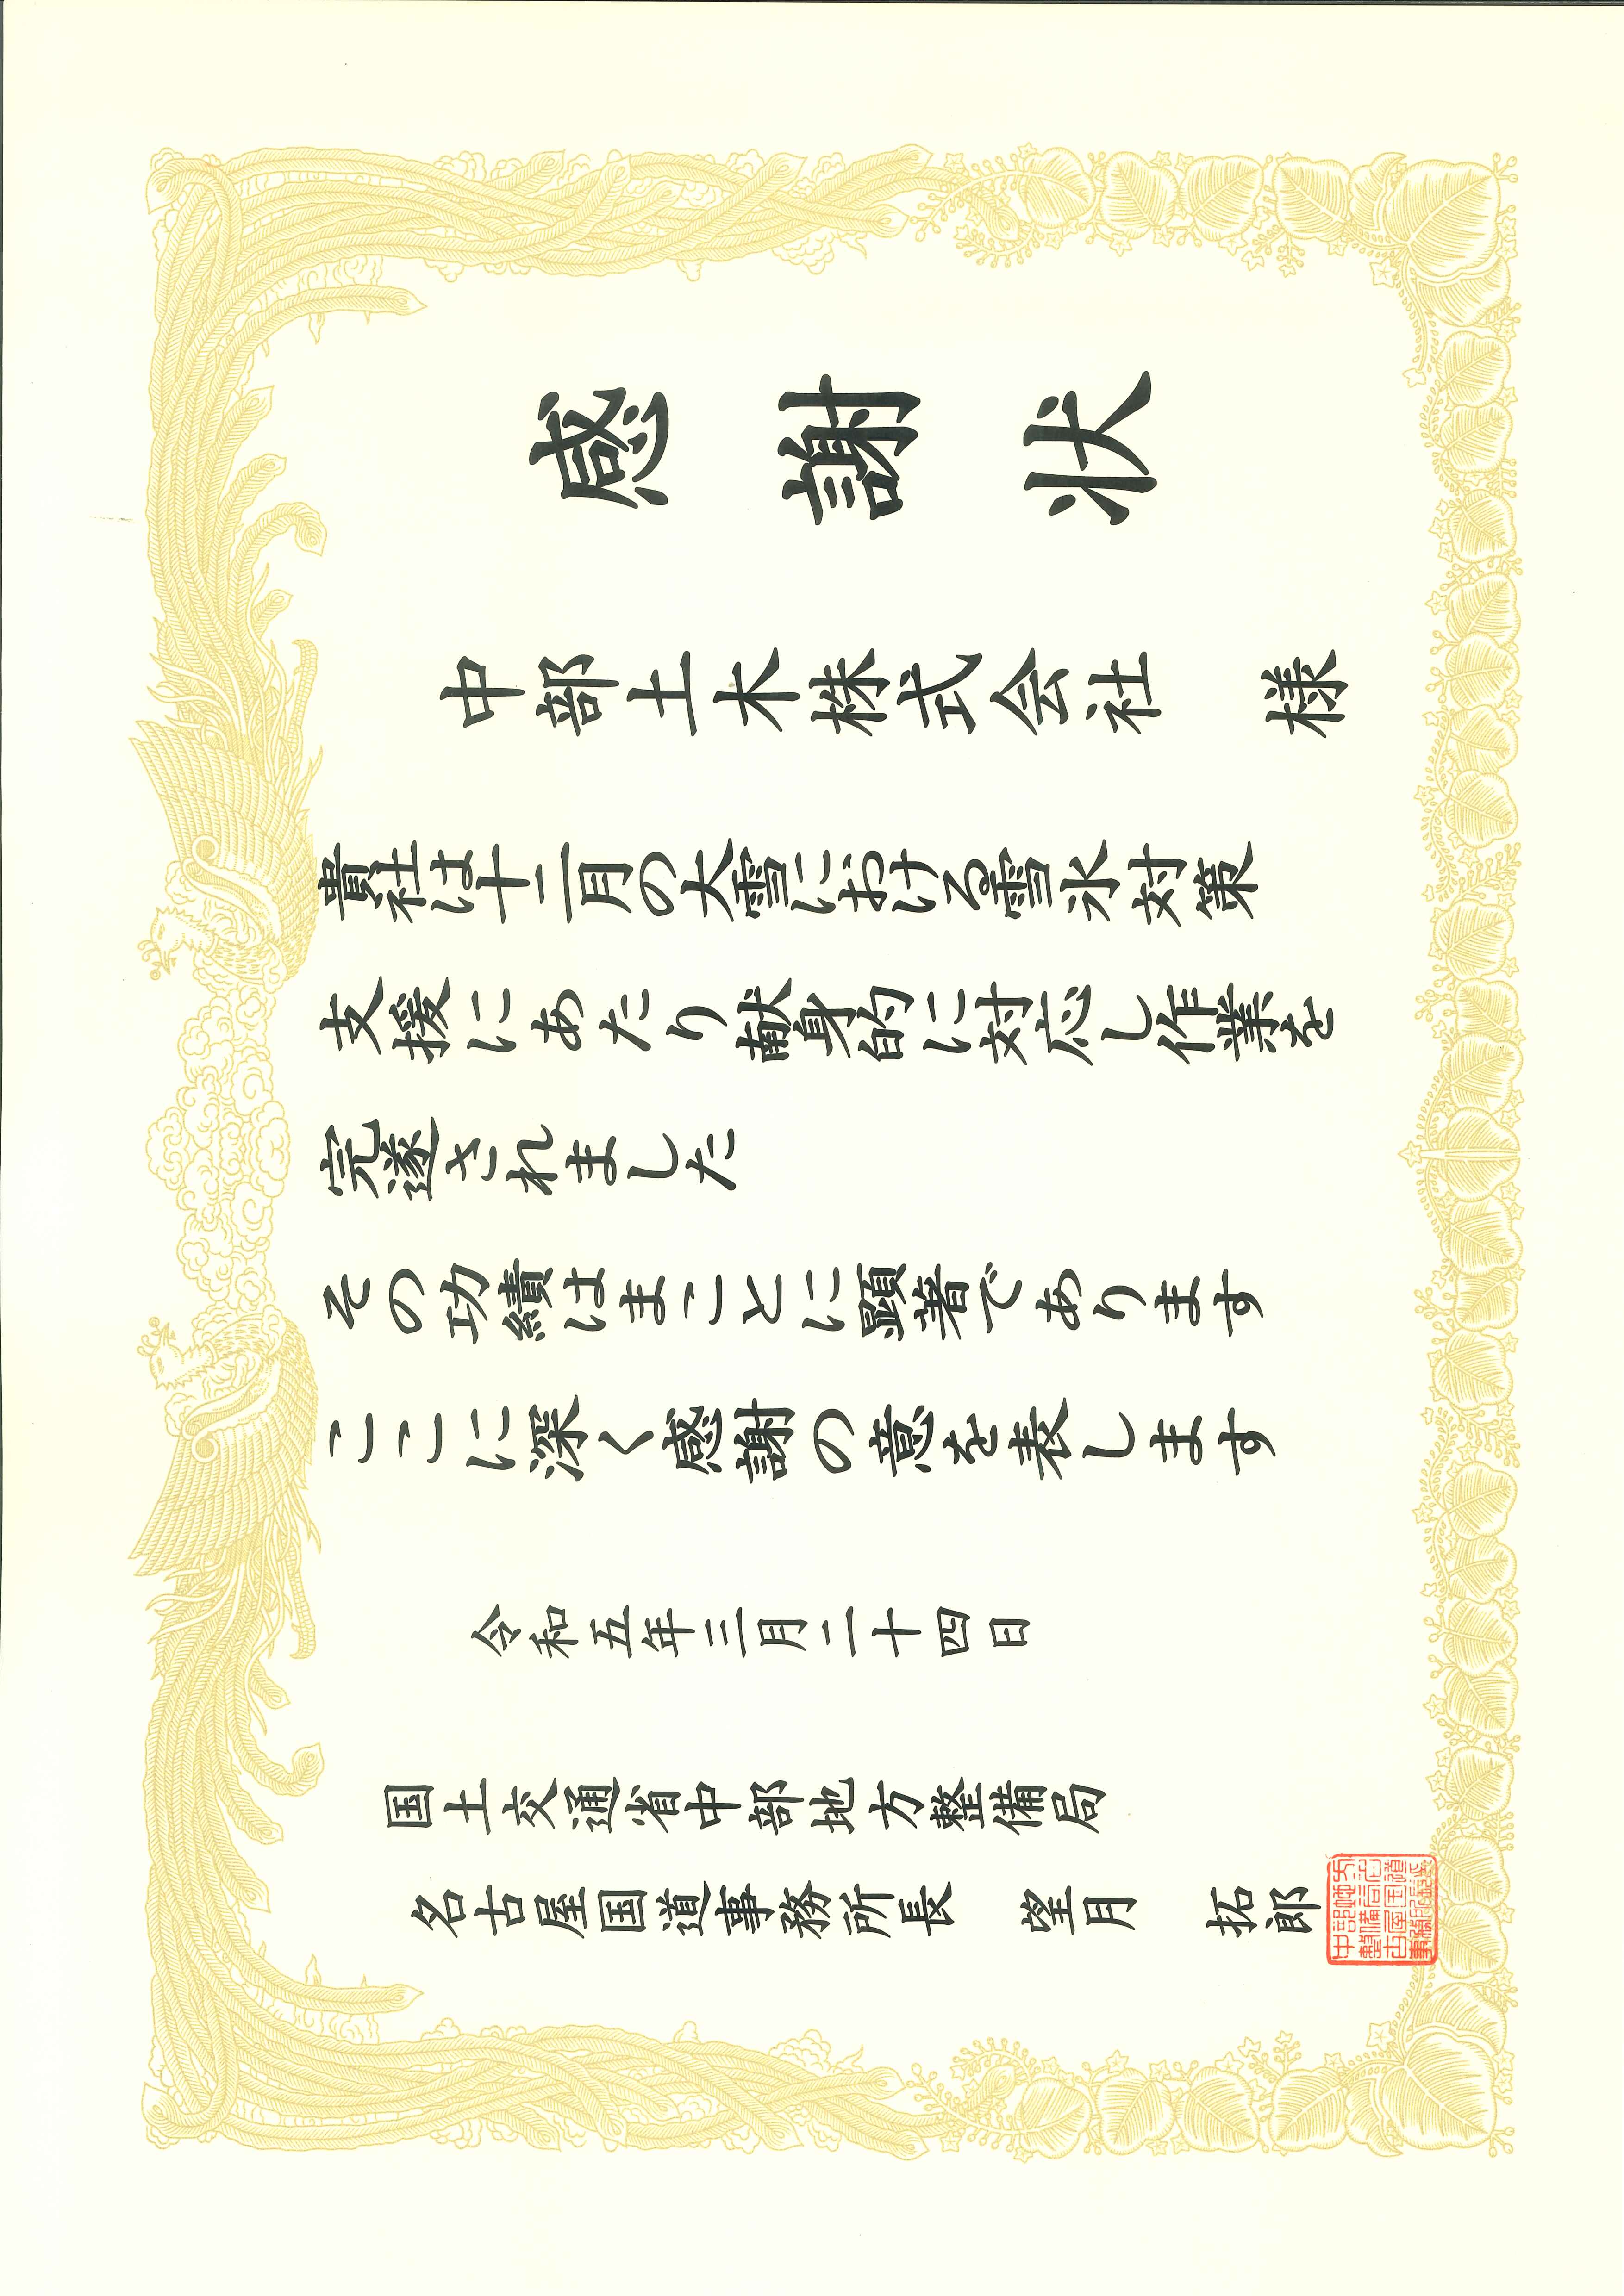 感謝状
中部土木株式会社 様
貴社は十二月の大雪における雪氷対策
支援にあたり献身的に対応し作業を
完遂されました
その功績はまことに顕著であります
ここに深く感謝の意を表します
令和五年三月二十四日
国土交通省中部地方整備局
名古屋国道事務所長 望月 拓郎